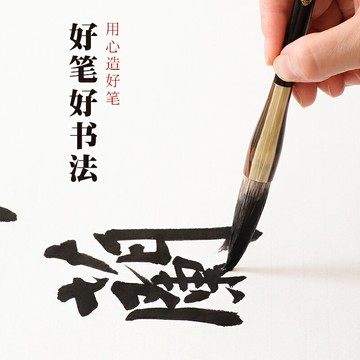 用心造好笔
好笔好书法
蘭